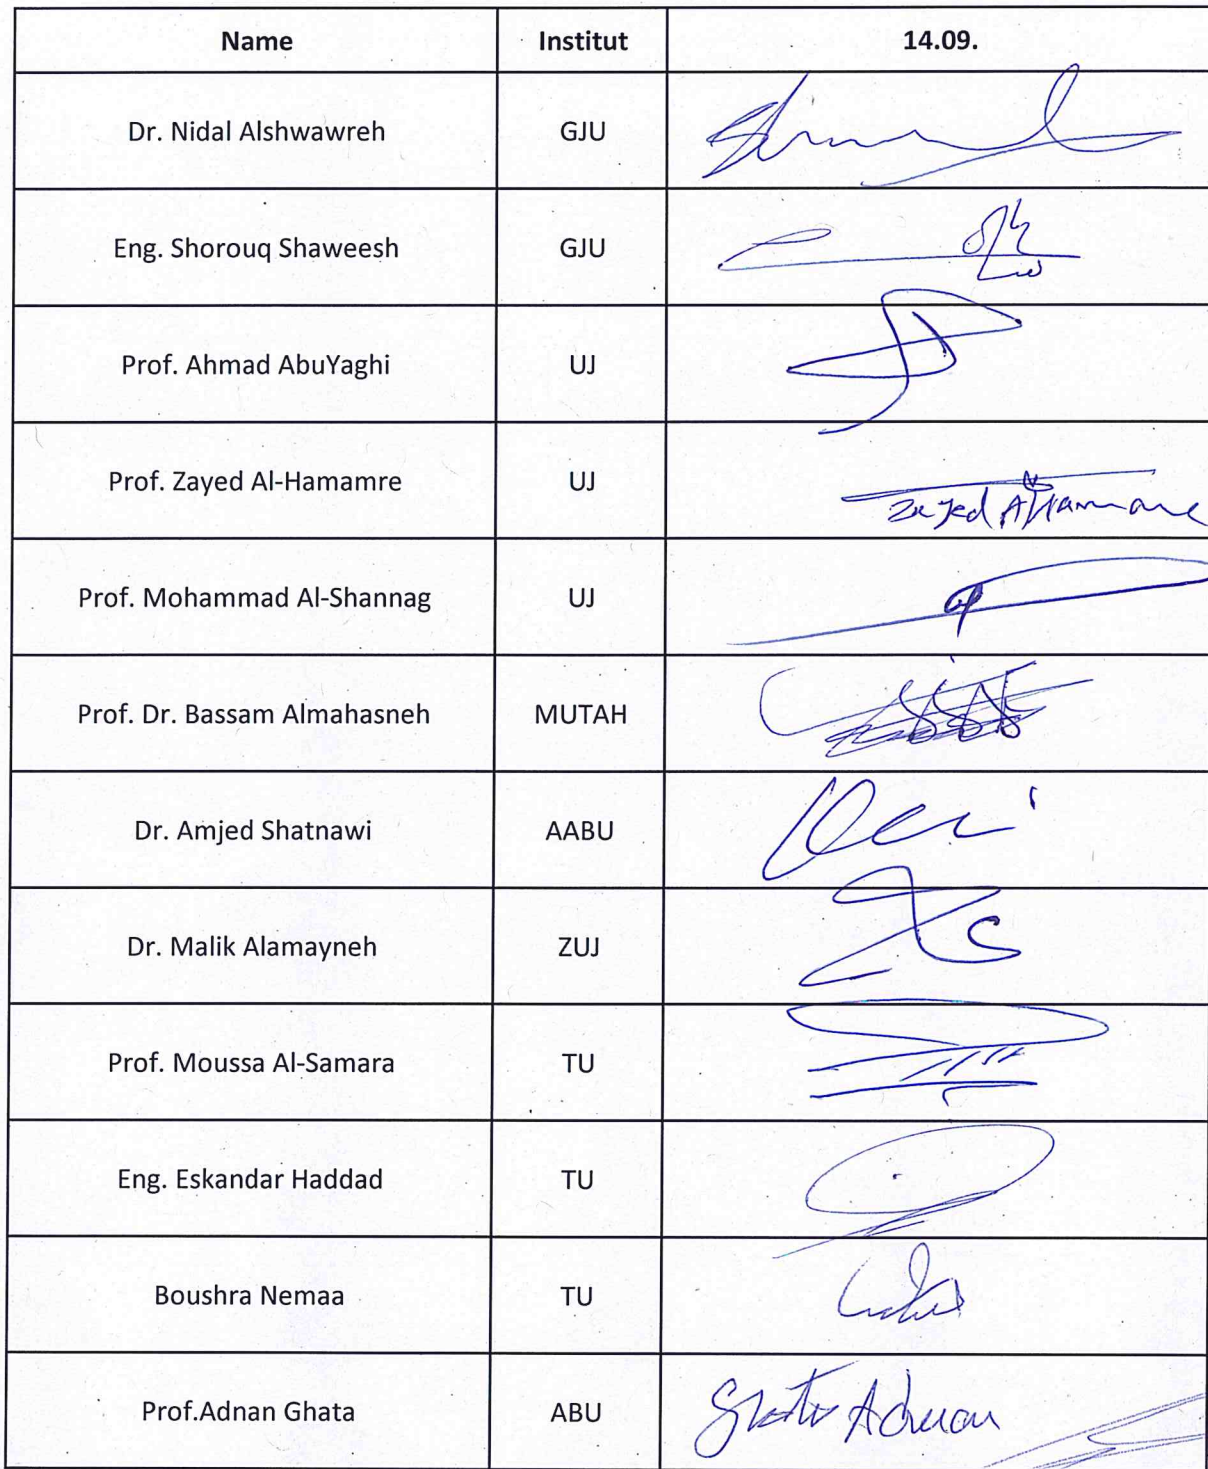 Name Institut 14.09.
Dr. Nidal Alshwawreh GJU
Eng. Shorouq Shaweesh GJU
Prof. Ahmad AbuYaghi UJ
Prof. Zayed Al-Hamamre UJ Zayed AlHamamre
Prof. Mohammad Al-Shannag UJ
Prof. Dr. Bassam Almahasneh MUTAH
Dr. Amjed Shatnawi AABU
Dr. Malik Alamayneh ZUJ
Prof. Moussa Al-Samara TU
Eng. Eskandar Haddad TU
Boushra Nemaa TU
Prof.Adnan Ghata ABU Adnan